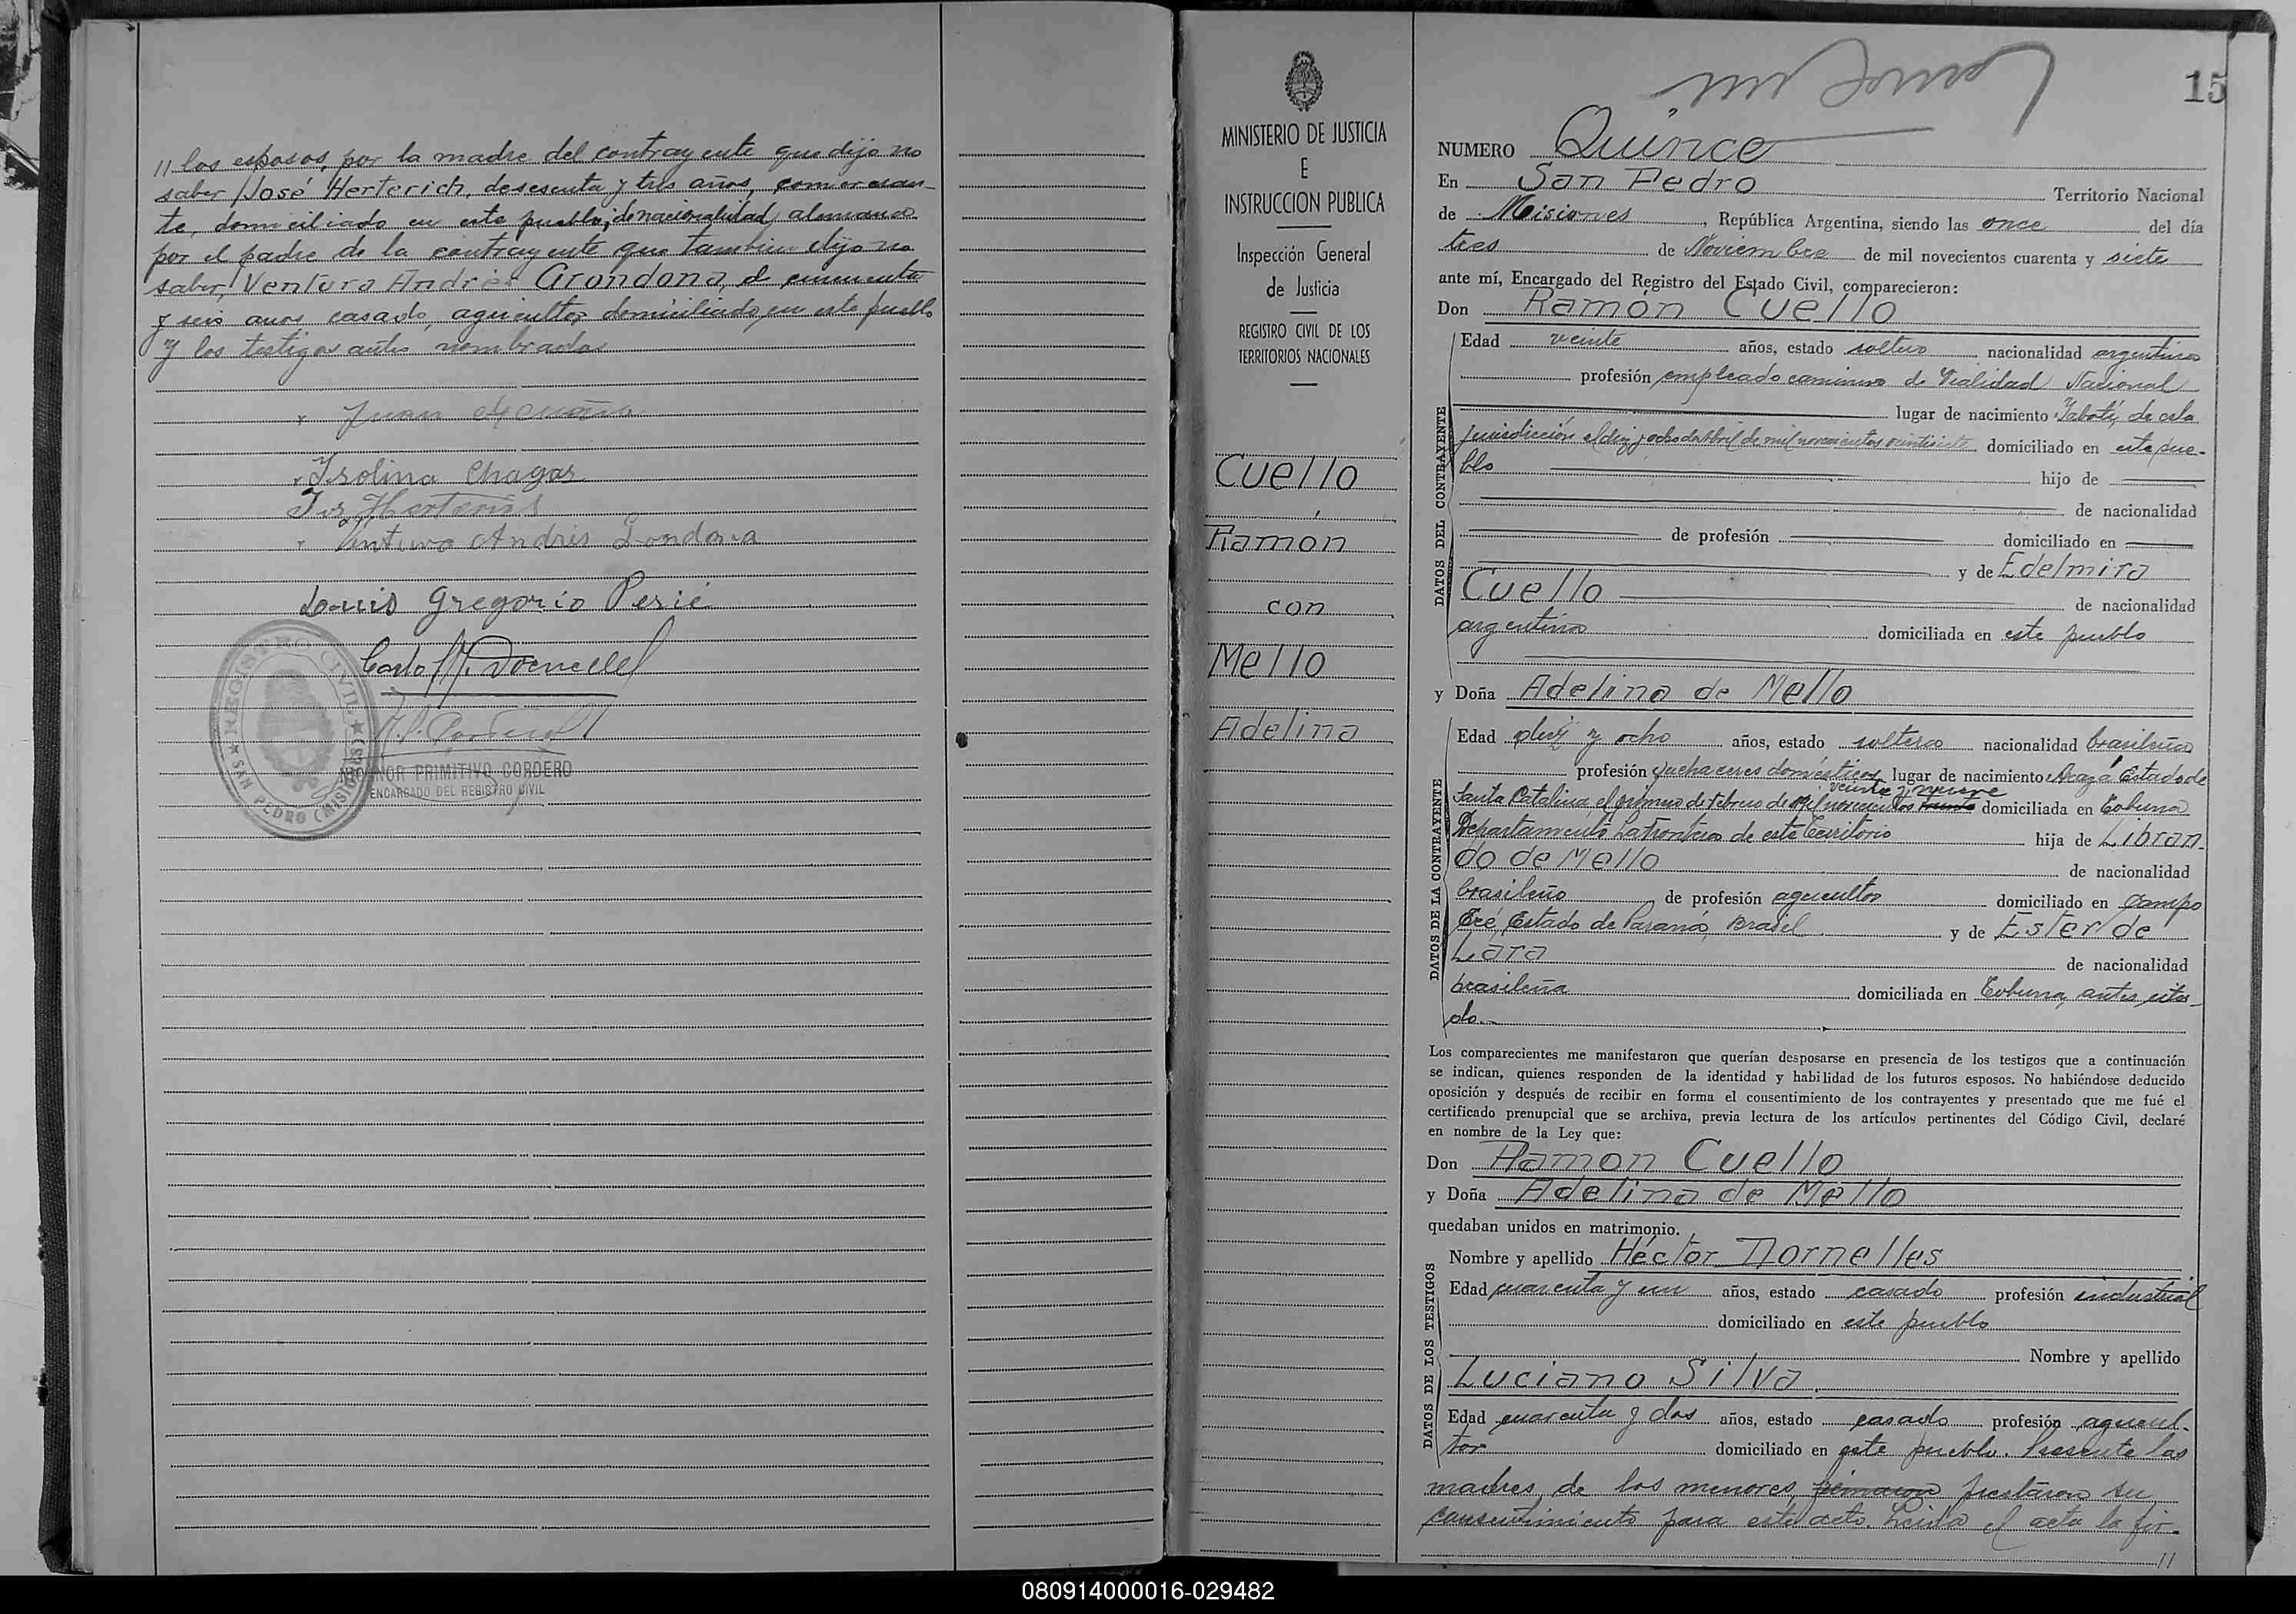 // los esposos, por la madre del contrayente que dijo no
saber José Herterich, de sesenta y tres años, comercian-
te, domiciliado en este pueblo, de nacionalidad alemana
por el padre de la contrayente que tambien dijo no
saber, Ventura Andrés Grondona, de cincuenta
y seis años, casado, agricultor, domiciliado en este pueblo
y los testigos antes nombrados
Juan
Isolina Chagas
Herterich
Ventura Andrés Grondona
Luis Gregorio Perié
REGISTRO CIVIL
SAN PEDRO (MISIONES)
PRIMITIVO CORDERO
ENCARGADO DEL REGISTRO CIVIL
MINISTERIO DE JUSTICIA
E
INSTRUCCION PUBLICA
Inspección General
de Justicia
REGISTRO CIVIL DE LOS
TERRITORIOS NACIONALES
Cuello
Ramón
con
Mello
Adelina
15
NUMERO Quince
En San Pedro Territorio Nacional
de Misiones, República Argentina, siendo las once del día
tres de Noviembre de mil novecientos cuarenta y siete
ante mí, Encargado del Registro del Estado Civil, comparecieron:
Don Ramón Cuello
DATOS DEL CONTRAYENTE
Edad veinte años, estado soltero nacionalidad argentino
profesión empleado camino de Vialidad Nacional
lugar de nacimiento Yabotí, de esta
jurisdicción el diez y ocho de Abril de mil novecientos veintisiete domiciliado en este pue-
blo hijo de
de nacionalidad
de profesión domiciliado en
y de Edelmira
Cuello de nacionalidad
argentina domiciliada en este pueblo
y Doña Adelina de Mello
DATOS DE LA CONTRAYENTE
Edad diez y ocho años, estado soltera nacionalidad brasileña
profesión quehaceres domésticos lugar de nacimiento Estado de
veinte y nueve
Santa Catalina, el primero de Febrero de mil novecientos treinta domiciliada en Cobuna
Departamento La Frontera de este Territorio hija de Libran-
do de Mello de nacionalidad
brasileño de profesión agricultor domiciliado en Campo
Eré, Estado de Paraná, Brasil y de Ester de
Lara de nacionalidad
brasileña domiciliada en Cobuna, antes cita-
do.-
Los comparecientes me manifestaron que querían desposarse en presencia de los testigos que a continuación
se indican, quienes responden de la identidad y habilidad de los futuros esposos. No habiéndose deducido
oposición y después de recibir en forma el consentimiento de los contrayentes y presentado que me fué el
certificado prenupcial que se archiva, previa lectura de los artículos pertinentes del Código Civil, declaré
en nombre de la Ley que:
Don Ramon Cuello
y Doña Adelina de Mello
quedaban unidos en matrimonio.
DATOS DE LOS TESTIGOS
Nombre y apellido Héctor Dornelles
Edad cuarenta y un años, estado casado profesión industrial
domiciliado en este pueblo
Nombre y apellido
Luciano Silva
Edad cuarenta y dos años, estado casado profesión agricul-
tor domiciliado en este pueblo. Presente las
madres de los menores firmaron prestaron su
consentimiento para este acto. Leida el acta la fir-
//
080914000016-029482